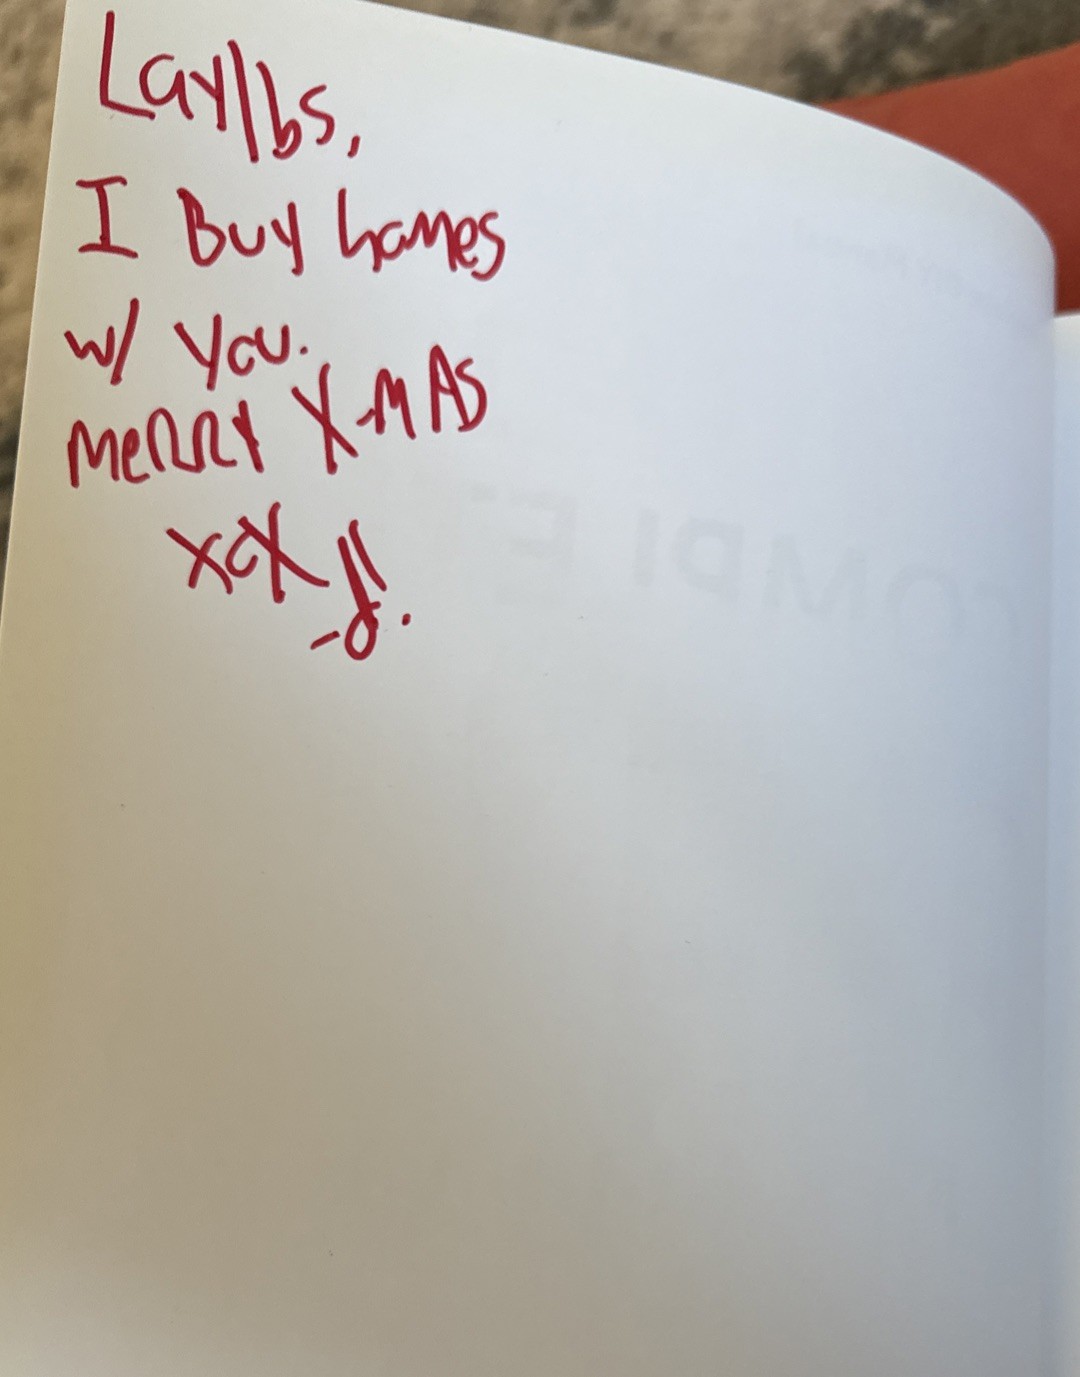 Layllbs,
I Buy homes
w/ you.
MeRRY X-MAS
xox
-J.